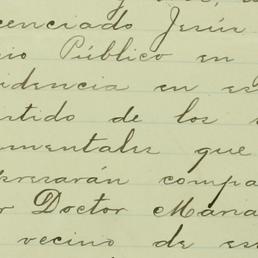 cenciado Jesús
io Público en
idencia en es
rtido de los
umentales que
presarán compa
r Doctor Maria
vecino de es